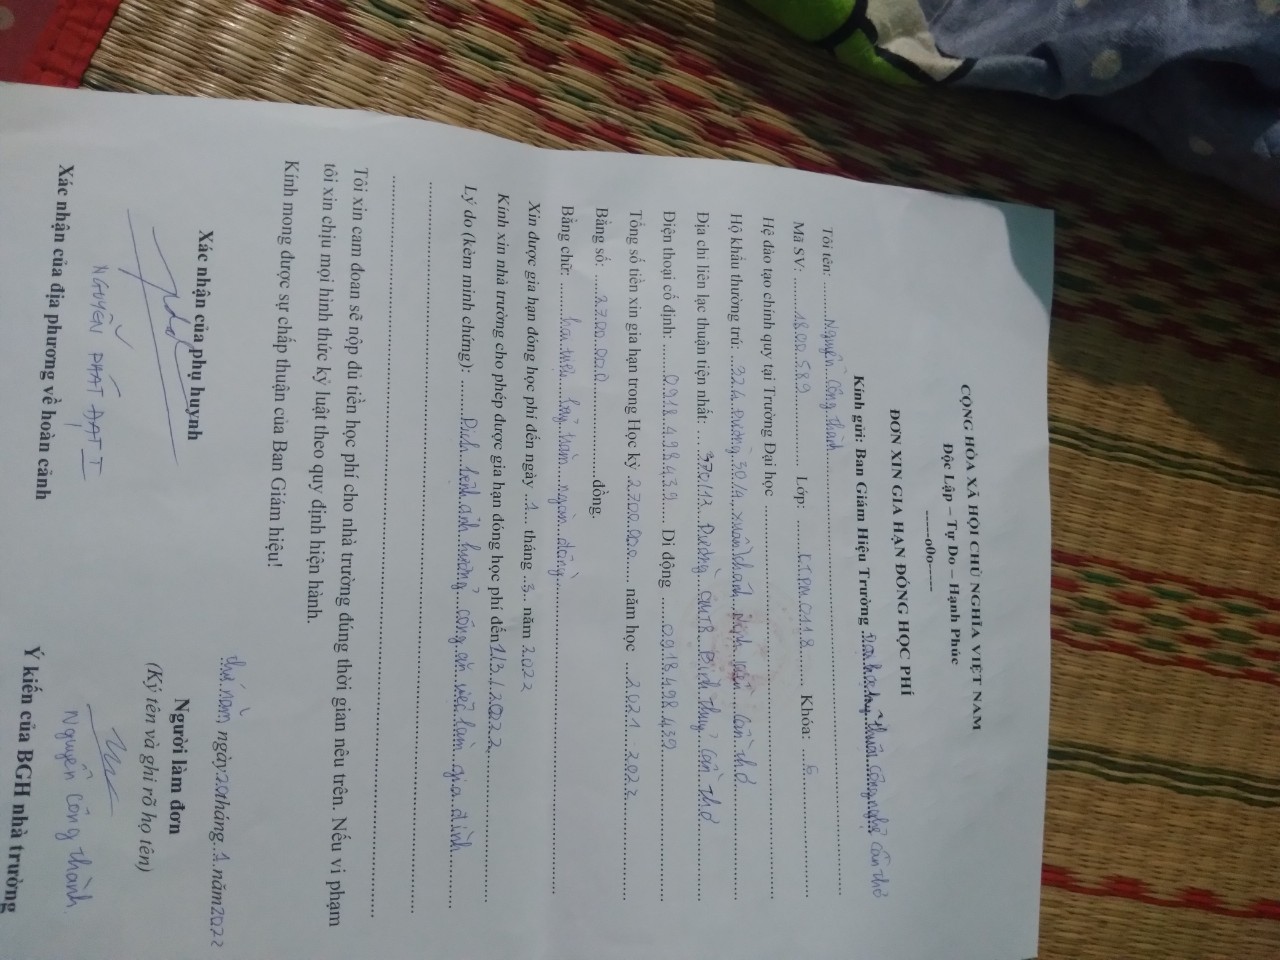 CỘNG HÒA XÃ HỘI CHỦ NGHĨA VIỆT NAM
Độc Lập – Tự Do – Hạnh Phúc
-----o0o-----
ĐƠN XIN GIA HẠN ĐÓNG HỌC PHÍ
Kính gửi: Ban Giám Hiệu Trường Đại học kỹ thuật công nghệ cần thơ
Tôi tên: Nguyễn Công Thành
Mã SV: 1800589 Lớp: KTPM0118 Khóa: 6
Hệ đào tạo chính quy tại Trường Đại học
Hộ khẩu thường trú 324 Đường 30/4 xuân khánh ninh kiều cần thơ
Địa chỉ liên lạc thuận tiện nhất: 370/12 Đường Bình thuỷ cần thơ
Điện thoại cố định: 0918498439 Di động 0918498439
Tổng số tiền xin gia hạn trong Học kỳ 2.700.000 năm học 2021-2022
Bằng số: 2.700.000 đồng.
Bằng chữ: hai triệu bảy trăm ngàn đồng
Xin được gia hạn đóng học phí đến ngày 1 tháng 3 năm 2022
Kính xin nhà trường cho phép được gia hạn đóng học phí đến 1/3/2022
Lý do (kèm minh chứng): Dịch bệnh ảnh hưởng công ăn việc làm gia đình
Tôi xin cam đoan sẽ nộp đủ tiền học phí cho nhà trường đúng thời gian nêu trên. Nếu vi phạm
tôi xin chịu mọi hình thức kỷ luật theo quy định hiện hành.
Kính mong được sự chấp thuận của Ban Giám hiệu!
thứ năm, ngày 20 tháng 1 năm 2022
Xác nhận của phụ huynh
Người làm đơn
(Ký tên và ghi rõ họ tên)
NGUYỄN PHÁT ĐẠT I
Nguyễn Công Thành
Xác nhận của địa phương về hoàn cảnh
Ý kiến của BGH nhà trường